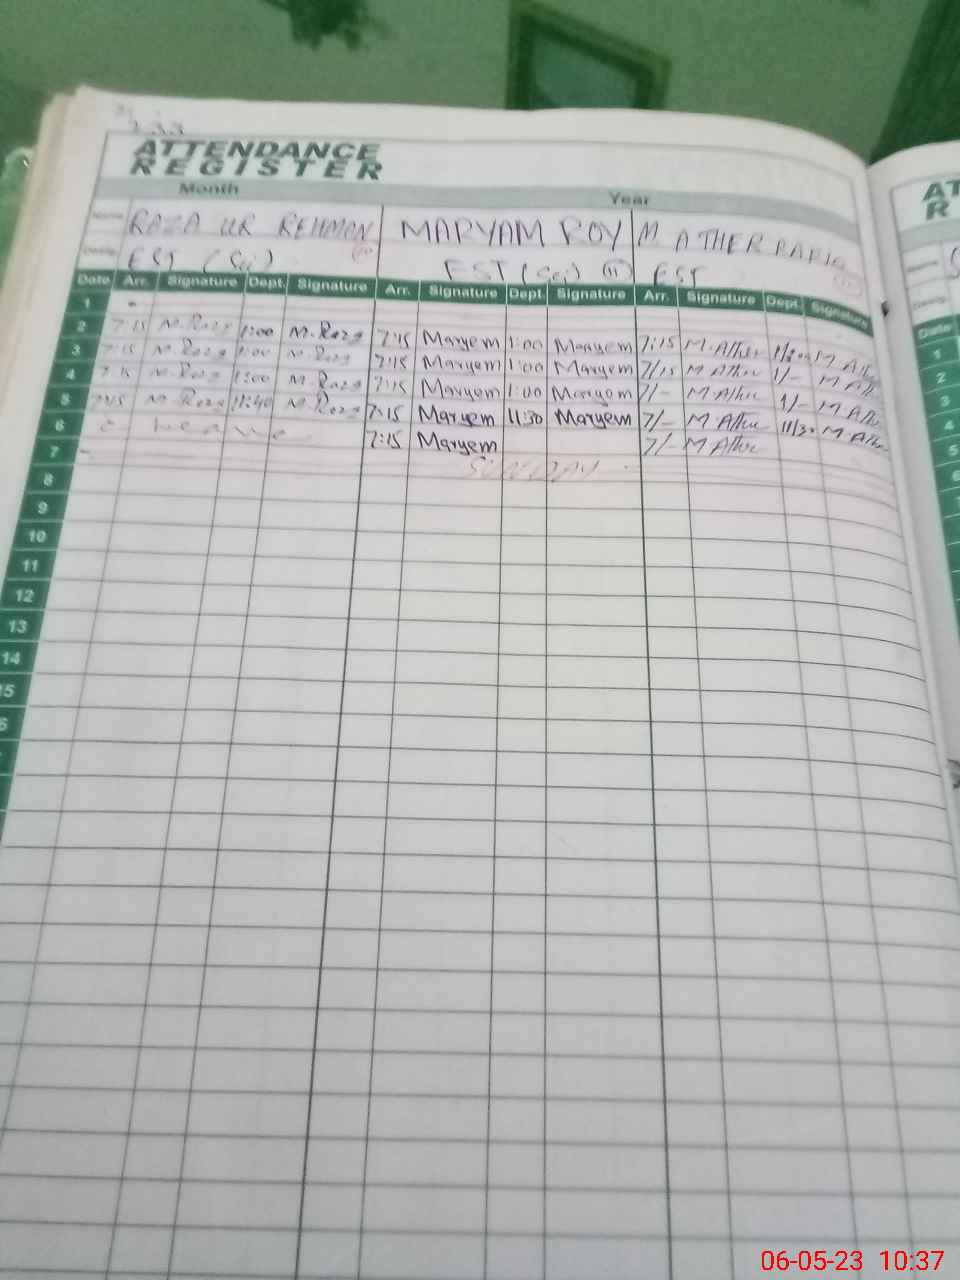 ATTENDANCE
REGISTER
AT
R
Month Year
Name RAZA UR REHMAN MARYAM ROY M ATHER
EST (Sci) EST (Sci) 11 EST
Date Arr. Signature Dept. Signature Arr. Signature Dept. Signature Arr. Signature Dept. Signature
Date
1
2 7:15 M.Raza 1:00 M.Raza 7:15 Maryem 1:00 Maryem 7:15 M.Ather M Ather
3 7:15 M.Raza 1:00 M.Raza 7:15 Maryem 1:00 Maryem 7/15 M Ather 1/- M Ather
4 7:15 M.Raza 1:00 M.Raza 7:15 Maryem 1:00 Maryem 7/- M Ather 1/- M Ather
5 7:15 M.Raza 11:40 M.Raza 7:15 Maryem 11:30 Maryem 7/- M Ather 11/30 M Ather
6 Leave 7:15 Maryem 7/- M Ather
7 SUNDAY
8
9
10
11
12
13
14
15
6
1
2
3
4
5
06-05-23 10:37